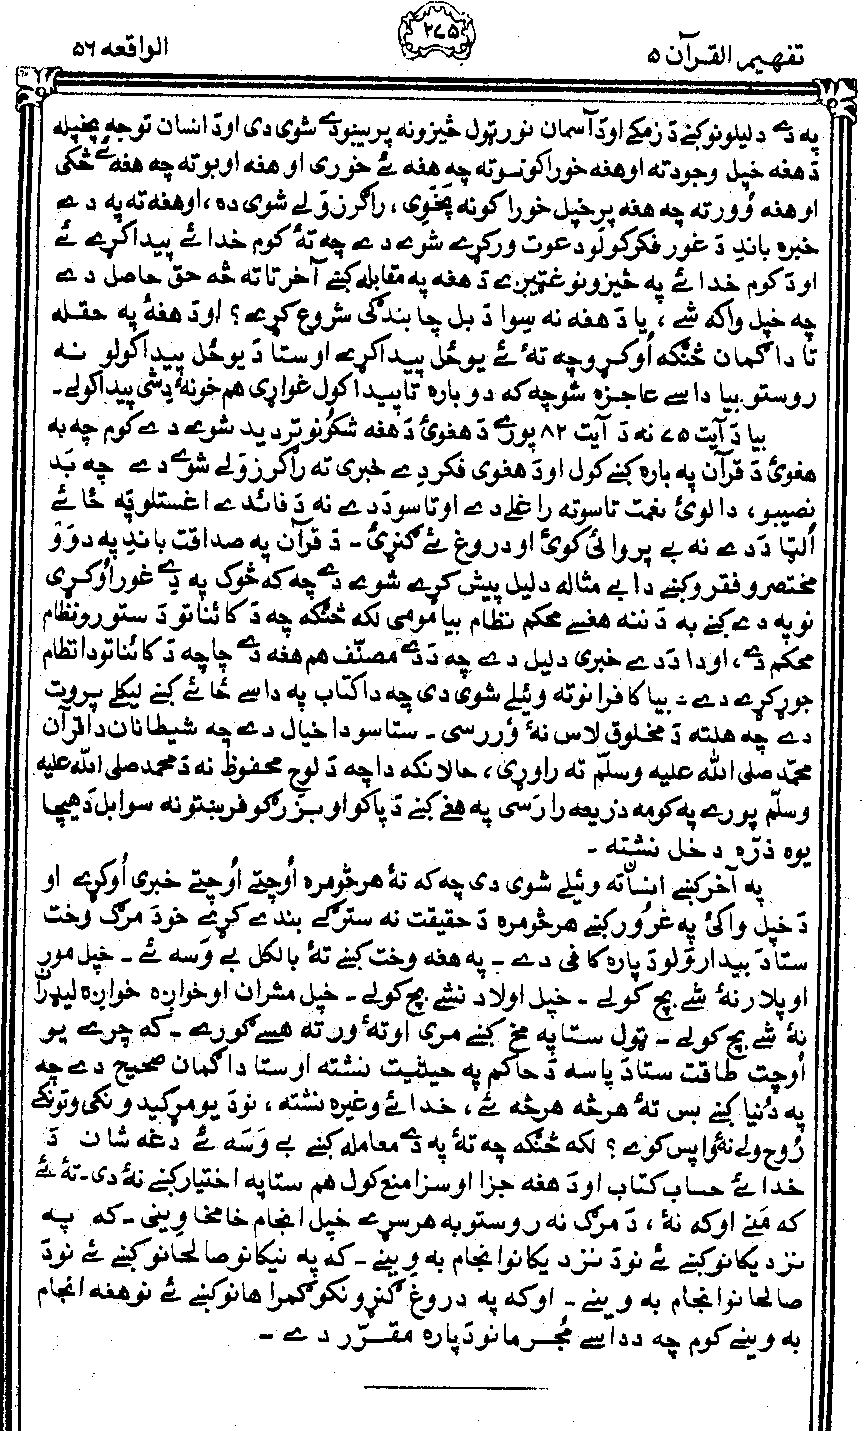 تفهیم القرآن ۵
۲۷۵
الواقعه ۵۶
په دے دلیلونو کښے دَ زمکے او دَ آسمان نور ټول څیزونه پریښودے شوی دی او دَ انسان توجه پخپله
دَ هغه خپل وجود ته او هغه خوراکونو ته چه هغه ئے خوری او هغه اوبو ته چه هغه ئے څکی
او هغه وُور ته چه هغه پرے خپل خوراکونه پخَوِی، راګرزَولے شوی ده، او هغه ته په دے
خبره باندِ دَ غور فکر کولو دعوت ورکړے شوے دے چه تهٔ کوم خدائے پیدا کړے ئے
او دَ کوم خدائے په څیزونو غټیږے دَ هغه په مقابله کښے آخر تا ته څه حق حاصل دے
چه خپل واکه شے، یا دَ هغه نه سِوا دَ بل چا بندګی شروع کړے؟ او دَ هغهٔ په حقله
تا دا ګمان څنګه اُوکړو چه تهٔ ئے یو ځل پیدا کړے او ستا دَ یو ځل پیدا کولو نه
روستو بیا داسے عاجزه شو چه که دوباره تا پیدا کول غواړی هم خو نهٔ دِ شی پیدا کولے۔
بیا دَ آیت ۷۵ نه دَ آیت ۸۲ پورے دَ هغویٔ دَ هغه شکُونو تردید شوے دے کوم چه به
هغویٔ دَ قرآن په باره کښے کول او دَ هغوی فکر دے خبری ته راګرزَولے شوے دے چه بَد
نصیبو، دا لویٔ نعمت تاسو ته راغلے دے او تاسو دَ دے نه دَ فائدے اغستلو په ځائے
اُلټا دَ دے نه بے پروائی کویٔ او دروغ ئے ګنړیٔ۔ دَ قرآن په صداقت باندِ په دوَوُ
مختصرو فقرو کښے دا بے مثاله دلیل پیش کړے شوے دے چه که څوک په دِے غور اُوکړی
نو په دے کښے به دَ ننه هغسے محکم نظام بیامُومی لکه څنګه چه دَ کائناتو دَ ستورو نظام
محکم دے، او دا دَ دے خبری دلیل دے چه دَ دے مصنّف هم هغه دے چا چه دَ کائناتو دا نظام
جوړ کړے دے۔ بیا کافرانو ته وئیلے شوی دی چه دا کتاب په داسے ځائے کښے لیکلے پروت
دے چه هلته دَ مخلوق لاس نهٔ وُررسی۔ ستاسو دا خیال دے چه شیطانان دا قرآن
محمّد صلی الله علیه وسلّم ته راوړی، حالانکه دا چه دَ لوحِ محفوظ نه دَ محمد صلی الله علیه
وسلّم پورے په کومه ذریعه را رَسی په هغے کښے دَ پاکو او بزرګو فرښتو نه سوا بل دَ هیچا
یوه ذرّه دخل نشته۔
په آخر کښے انسان ته وئیلے شوی دی چه که تهٔ هر څومره اُوچتے اُوچتے خبری اُوکړے او
دَ خپل واکیٔ په غرُور کښے هر څومره دَ حقیقت نه سترګے بندے کړے خو دَ مرګ وخت
ستا دَ بیدارَولو دَپاره کافی دے۔ په هغه وخت کښے تهٔ بالکل بے وَسه ئے۔ خپل مور
او پلار نهٔ شے بچ کولے۔ خپل اولاد نشے بچ کولے۔ خپل مشران او خواږه خواږه لیډران
نهٔ شے بچ کولے۔ ټول ستا په مخ کښے مری او تهٔ ورته هسے ګورے۔ که چرے یو
اُوچت طاقت ستا دَپاسه دَ حاکم په حیثیت نشته او ستا دا ګمان صحیح دے چه
په دُنیا کښے بس تهٔ هر څه هر څه ئے، خدائے وغیره نشته، نو دَ یو مرکیدونکی وتونکے
رُوح ولے نهٔ واپس کوے؟ لکه څنګه چه تهٔ په دے معامله کښے بے وَسه ئے دغه شان دَ
خدائے حساب کتاب او دَ هغه جزا او سزا منع کول هم ستا په اختیار کښے نهٔ دی۔ تهٔ ئے
که مَنے او که نهٔ، دَ مرګ نه روستو به هر سړے خپل انجام خامخا وینی۔ که په
نزدیکانو کښے ئے نو دَ نزدیکانو انجام به وینے۔ که په نیکانو صالحانو کښے ئے نو دَ
صالحانو انجام به وینے۔ او که په دروغ ګنړونکو ګمراهانو کښے ئے نو هغه انجام
به وینے کوم چه دَ داسے مُجرمانو دَپاره مقرّر دے۔